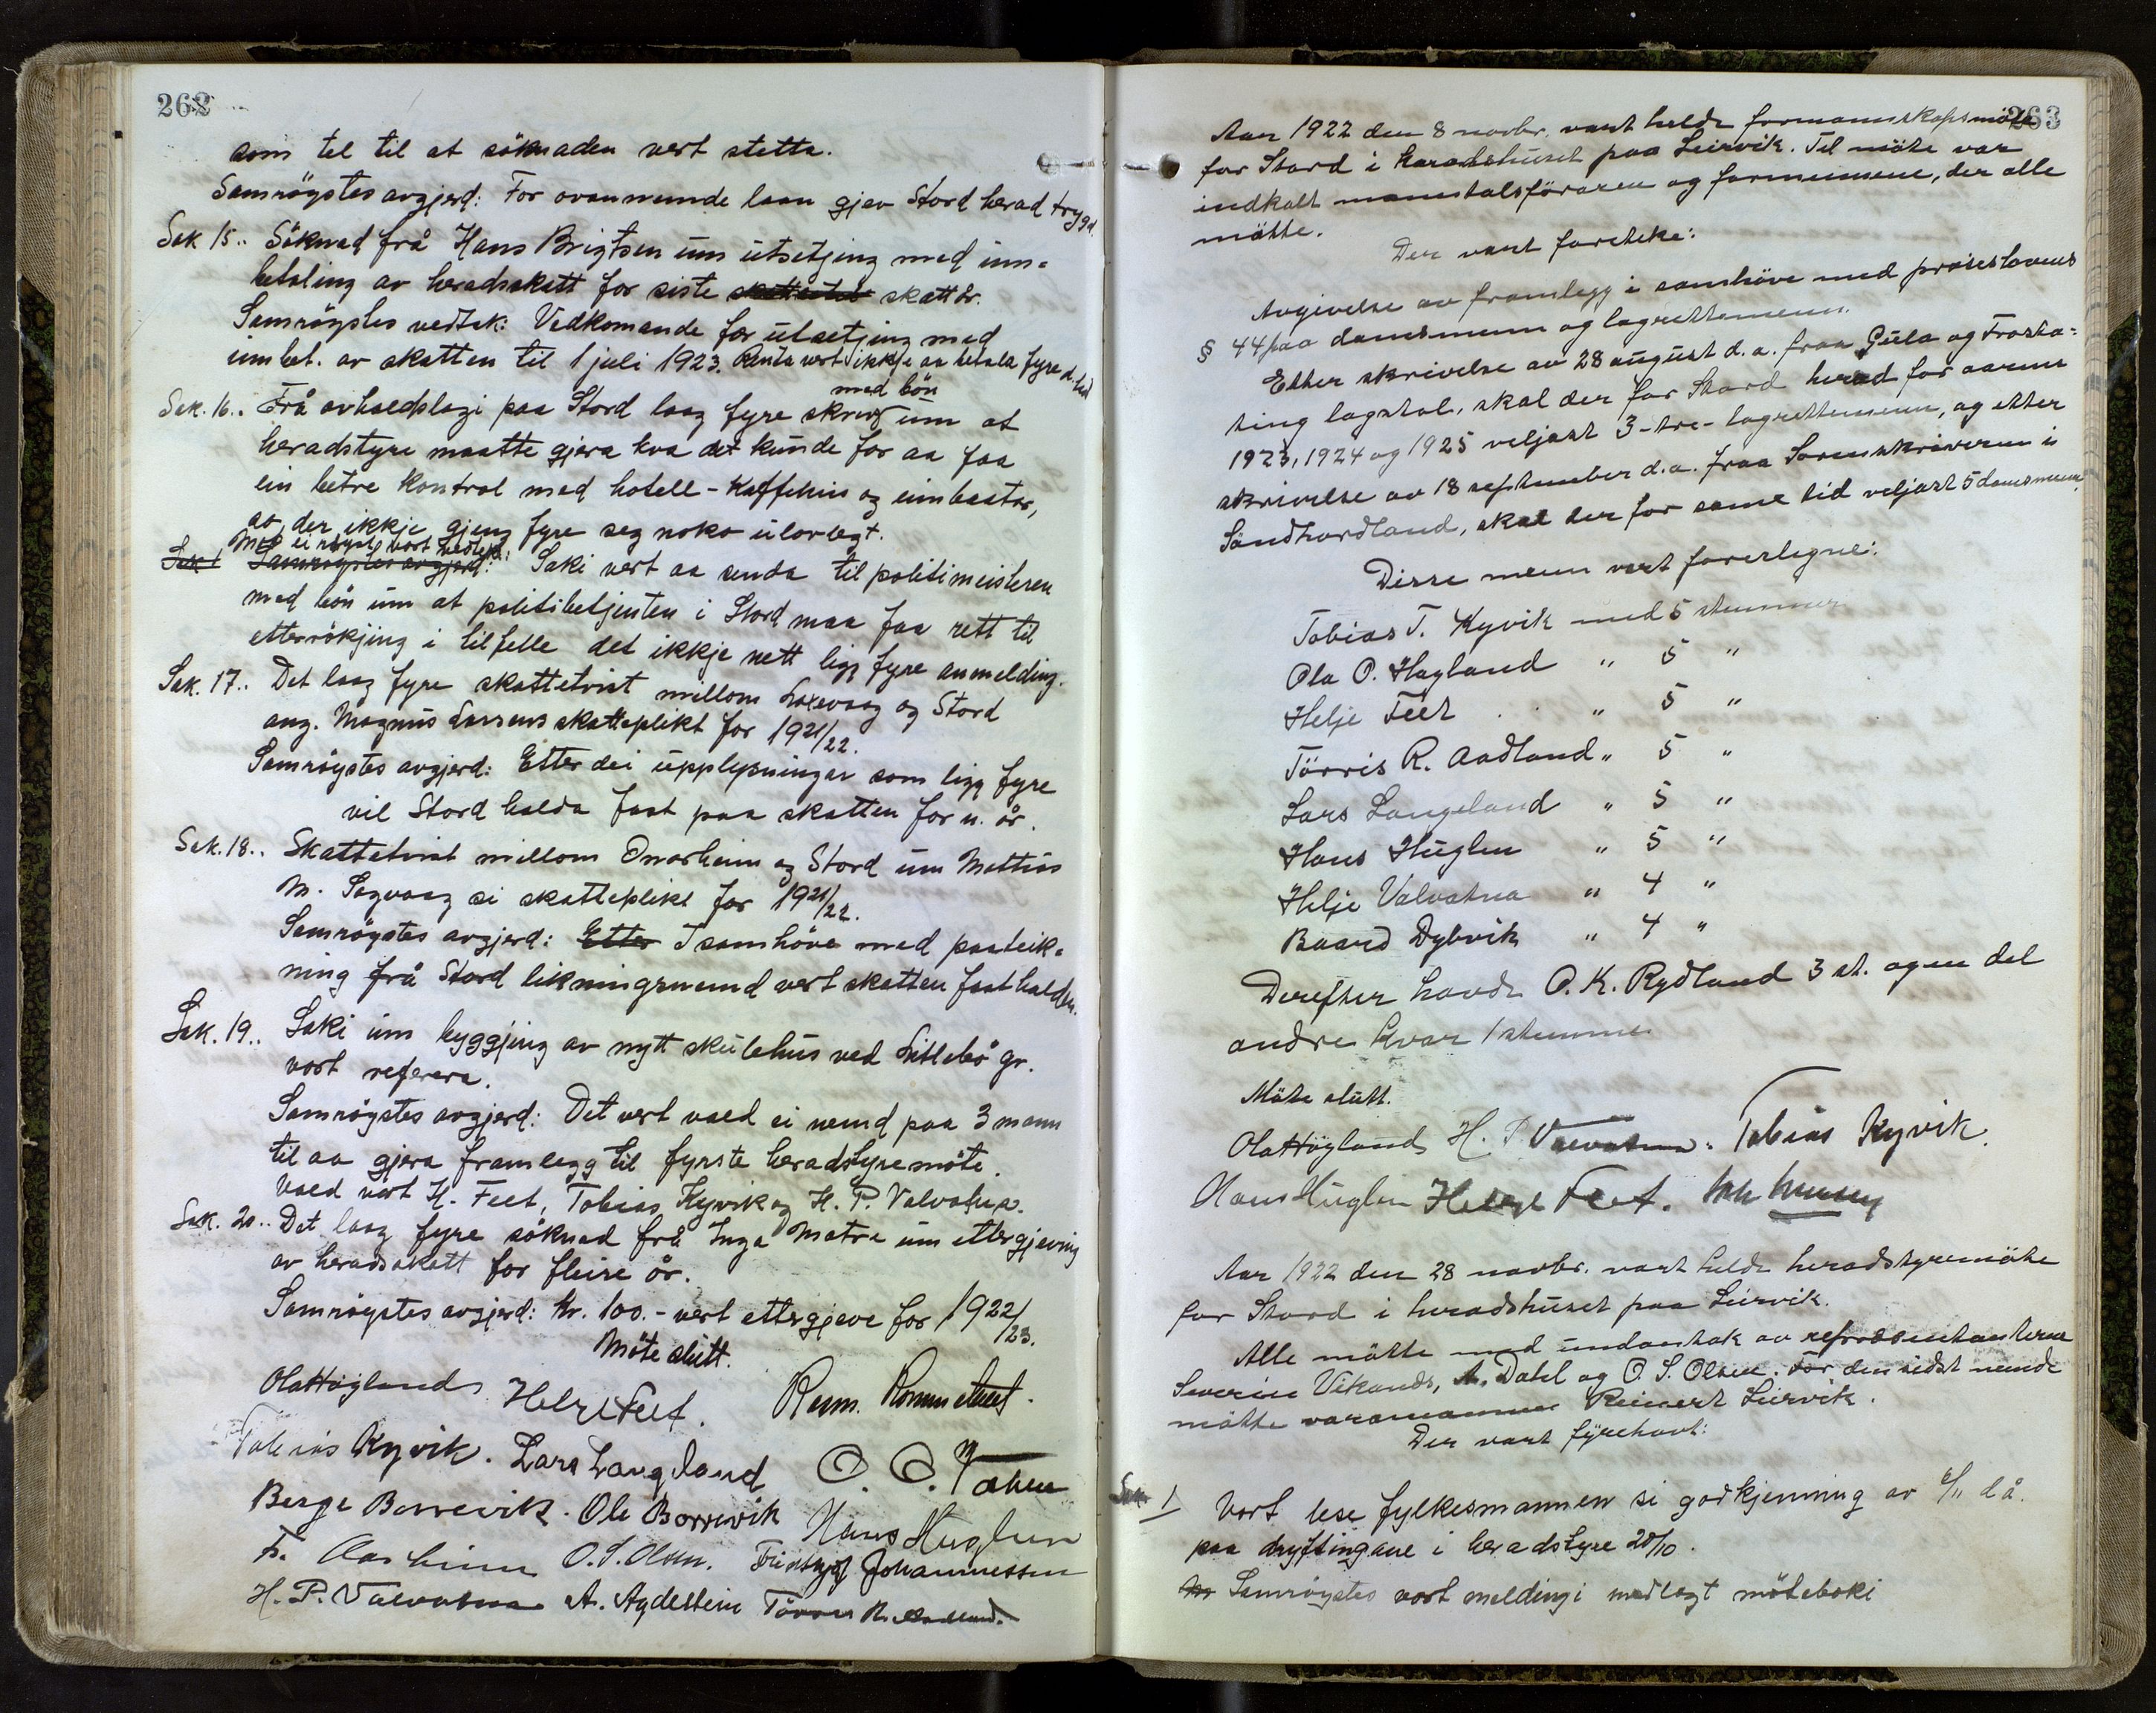 262
som tel til at söknaden vert stetta.
Samröystes avgjerd: For ovannemde laan gjev Stord herad trygd.
Sak 15.. Söknad frå Hans Brigtsen um utsetjing med inn-
betaling av heradsskatt for siste skattår.
Samröystes vedtak: Vedkomande fær utsetjing med
innbet. av skatten til 1 juli 1923. Renta vert ikkje aa betala fyre d. tid
Sak. 16.. Frå avhaldslagi paa Stord laag fyre skriv med bön um at
heradstyre maatte gjera kva det kunde for aa faa
ein betre kontrol med hotell-kaffehus og eimbaatar,
so der ikkje gjeng fyre seg noko ulovlegt.
Sak 1 Samröystes avgjerd: Mot ei röyst vart vedteke: Saki vert aa senda til politimeisteren
med bön um at politibetjenten i Stord maa faa rett til
etterrökjing i tilfelle det ikkje nett ligg fyre anmelding.
Sak. 17.. Det laag fyre skattetvist millom Laxevaag og Stord
ang. Magnus Larsens skatteplikt for 1921/22.
Samröystes avgjerd: Etter dei upplysningar som ligg fyre
vil Stord halda fast paa skatten for n. år.
Sak. 18.. Skattetvist millom Onarheim og Stord um Mattias
M. Sagvaag si skatteplikt for 1921/22.
Samröystes avgjerd: Etter I samhöve med paateik-
ning frå Stord likningsnemnd vert skatten fasthalden.
Sak. 19.. Saki um byggjing av nytt skulehus ved Littlebö gr.
vart referera.
Samröystes avgjerd: Det vert vald ei nemd paa 3 mann
til aa gjera framlegg til fyrste heradstyremöte.
Vald vart H. Feet, Tobias Kyvik og H. P. Valvatna.
Sak. 20.. Det laag fyre söknad frå Inga Matre um ettergjeving
av heradsskatt for fleire år.
Samröystes avgjerd: Kr. 100.- vert ettergjeve for 1922/23.
Möte slutt.
Ola Högland Helge Feet. Rasm. Rommetveit.
Tobias Kyvik. Lars Langeland O. O.
Berge Borrevik. Ole Borrevik Hans Huglen
O. S. Olsen. Fridtjof Johannessen
H. P. Valvatna A. Agdestein Törris R. Aadland.
263
Aar 1922 den 8 novbr. vart halde formannskapsmöte
for Stord i heradshuset paa Leirvik. Til möte var
indkalt manntalsföraren og formennene, der alle
mötte.
Der vart foreteke:
Avgivelse av framlegg i samhöve med proseslovens
§ 44 paa domsmenn og lagrettemenn.
Etter skrivelse av 28 august d.a. fraa Gula og Frosta-
ting lagstol, skal der for Stord herad for aarene
1923, 1924 og 1925 veljast 3-tre- lagrettemenn, og etter
skrivelse av 18 september d.a. fraa Sorenskriveren i
Sundhordland, skal der for same tid veljast 5 domsmenn.
Disse menn vart foreslegne:
Tobias T. Kyvik med 5 stemmer
Ola O. Högland " 5 "
Helje Feet " 5 "
Törris R. Aadland " 5 "
Lars Langeland " 5 "
Hans Huglen " 5 "
Helje Valvatna " 4 "
Baard Dybvik " 4 "
Derefter havde O. K. Rydland 3 st. og en del
andre kvar 1 stemme
Möte slutt.
Ola Högland H. P. Valvatna. Tobias Kyvik.
Hans Huglen Helge Feet.
Aar 1922 den 28 novbr. vart halde heradstyremöte
for Stord i heradshuset paa Leirvik.
Alle mötte med undantak av representanterne
Severin Vikanes, A. Dahl og O. S. Olsen. For den sidst nemde
mötte varamannen Reinert Leirvik.
Der vart fyrehavt:
Sak 1/ Vart lese fylkesmannen si godkjenning av 6/11 d å.
paa dryftingane i heradstyre 20/10.
Samröystes vart meldingi medlagt möteboki